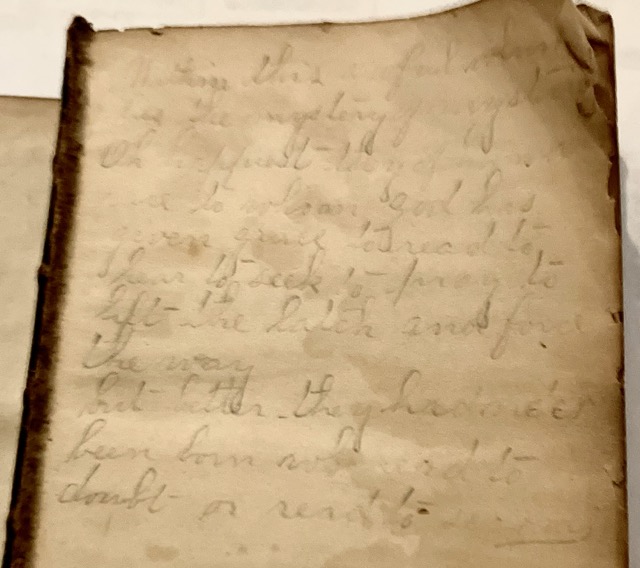 Within this awful
lies the mystery of
Oh happiest they of human
race to whom God has
given grace to read to
to seek to pray to
lift the latch and force
the way
but better they had
been born who read to
doubt or read to